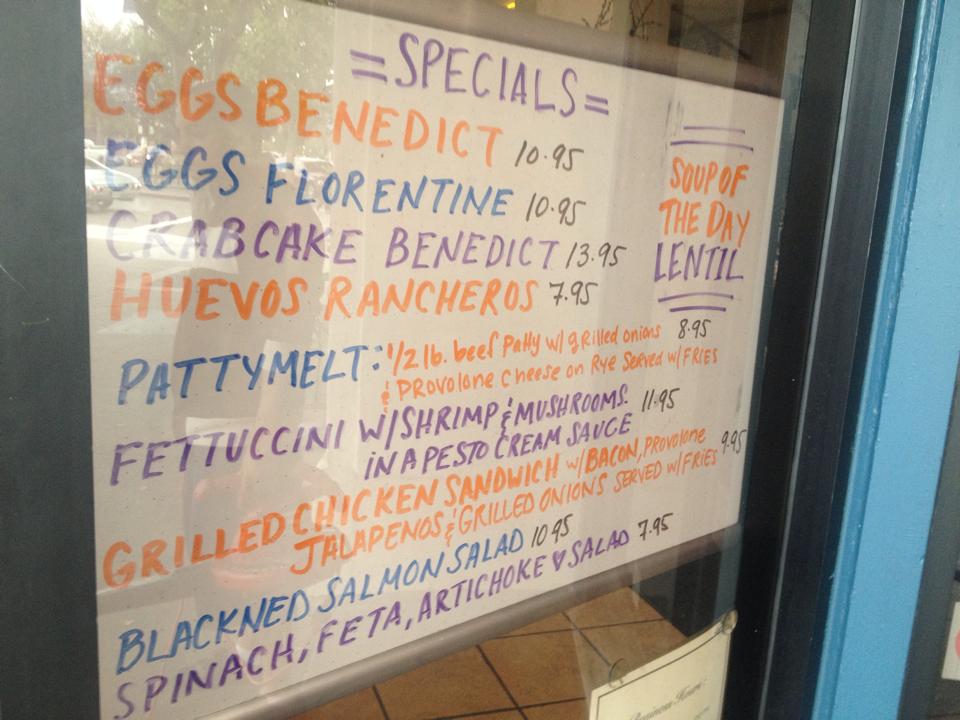 =SPECIALS=
EGGS BENEDICT 10.95
EGGS FLORENTINE 10.95
CRABCAKE BENEDICT 13.95
HUEVOS RANCHEROS 7.95
SOUP OF
THE DAY
LENTIL
PATTYMELT: 1/2 lb. beef Patty w/ gRilled onions 8.95
& PROVOLONE CHEESE on Rye Served w/ FRIES
FETTUCCINI W/SHRIMP & MUSHROOMS 11.95
IN A PESTO CREAM SAUCE
GRILLED CHICKEN SANDWICH w/ BACON, PROVOLONE 9.95
JALAPENOS & GRILLED ONIONS SERVED w/ FRIES
BLACKNED SALMON SALAD 10.95
SPINACH, FETA, ARTICHOKE ♥ SALAD 7.95
Business Hours: